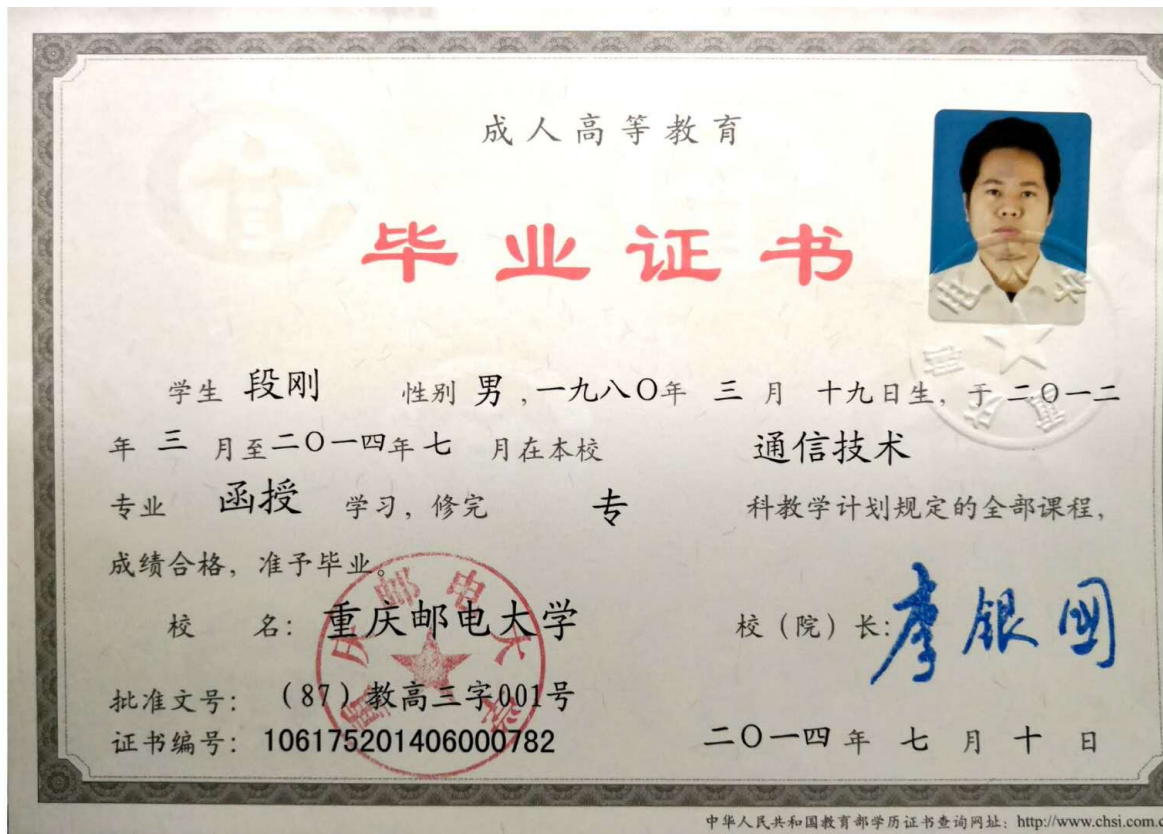 成人高等教育
毕业证书
学生 段刚 性别 男，一九八〇年 三 月 十九日生，于二〇一二
年 三 月至二〇一四年七 月在本校 通信技术
专业 函授 学习，修完 专 科教学计划规定的全部课程，
成绩合格，准予毕业。
校 名：重庆邮电大学 校（院）长：李银国
批准文号：（87）教高三字001号
证书编号：106175201406000782 二〇一四年 七 月 十 日
中华人民共和国教育部学历证书查询网址：http://www.chsi.com.c
重庆邮电大学